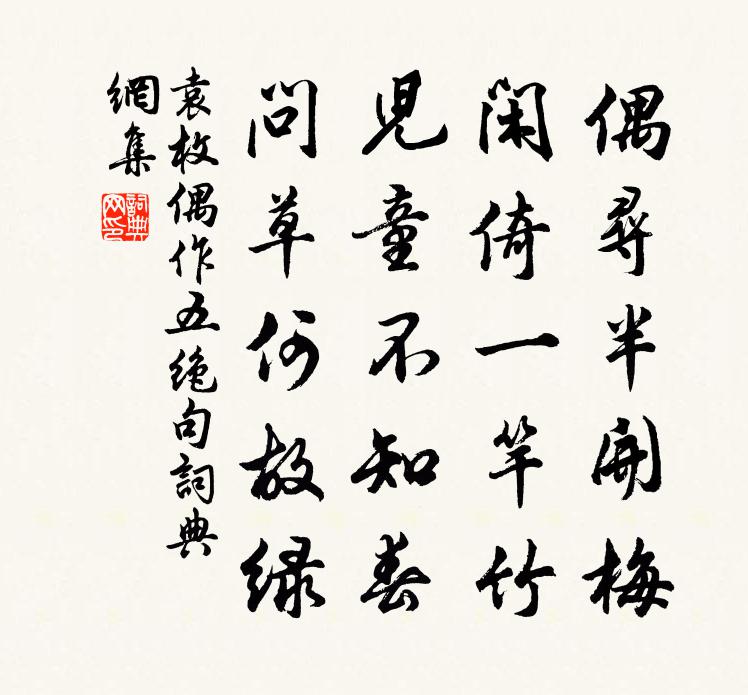 偶尋半開梅
閑倚一竿竹
兒童不知春
問草何故綠
袁枚偶作五絕句詞典
網集
詞典
网印